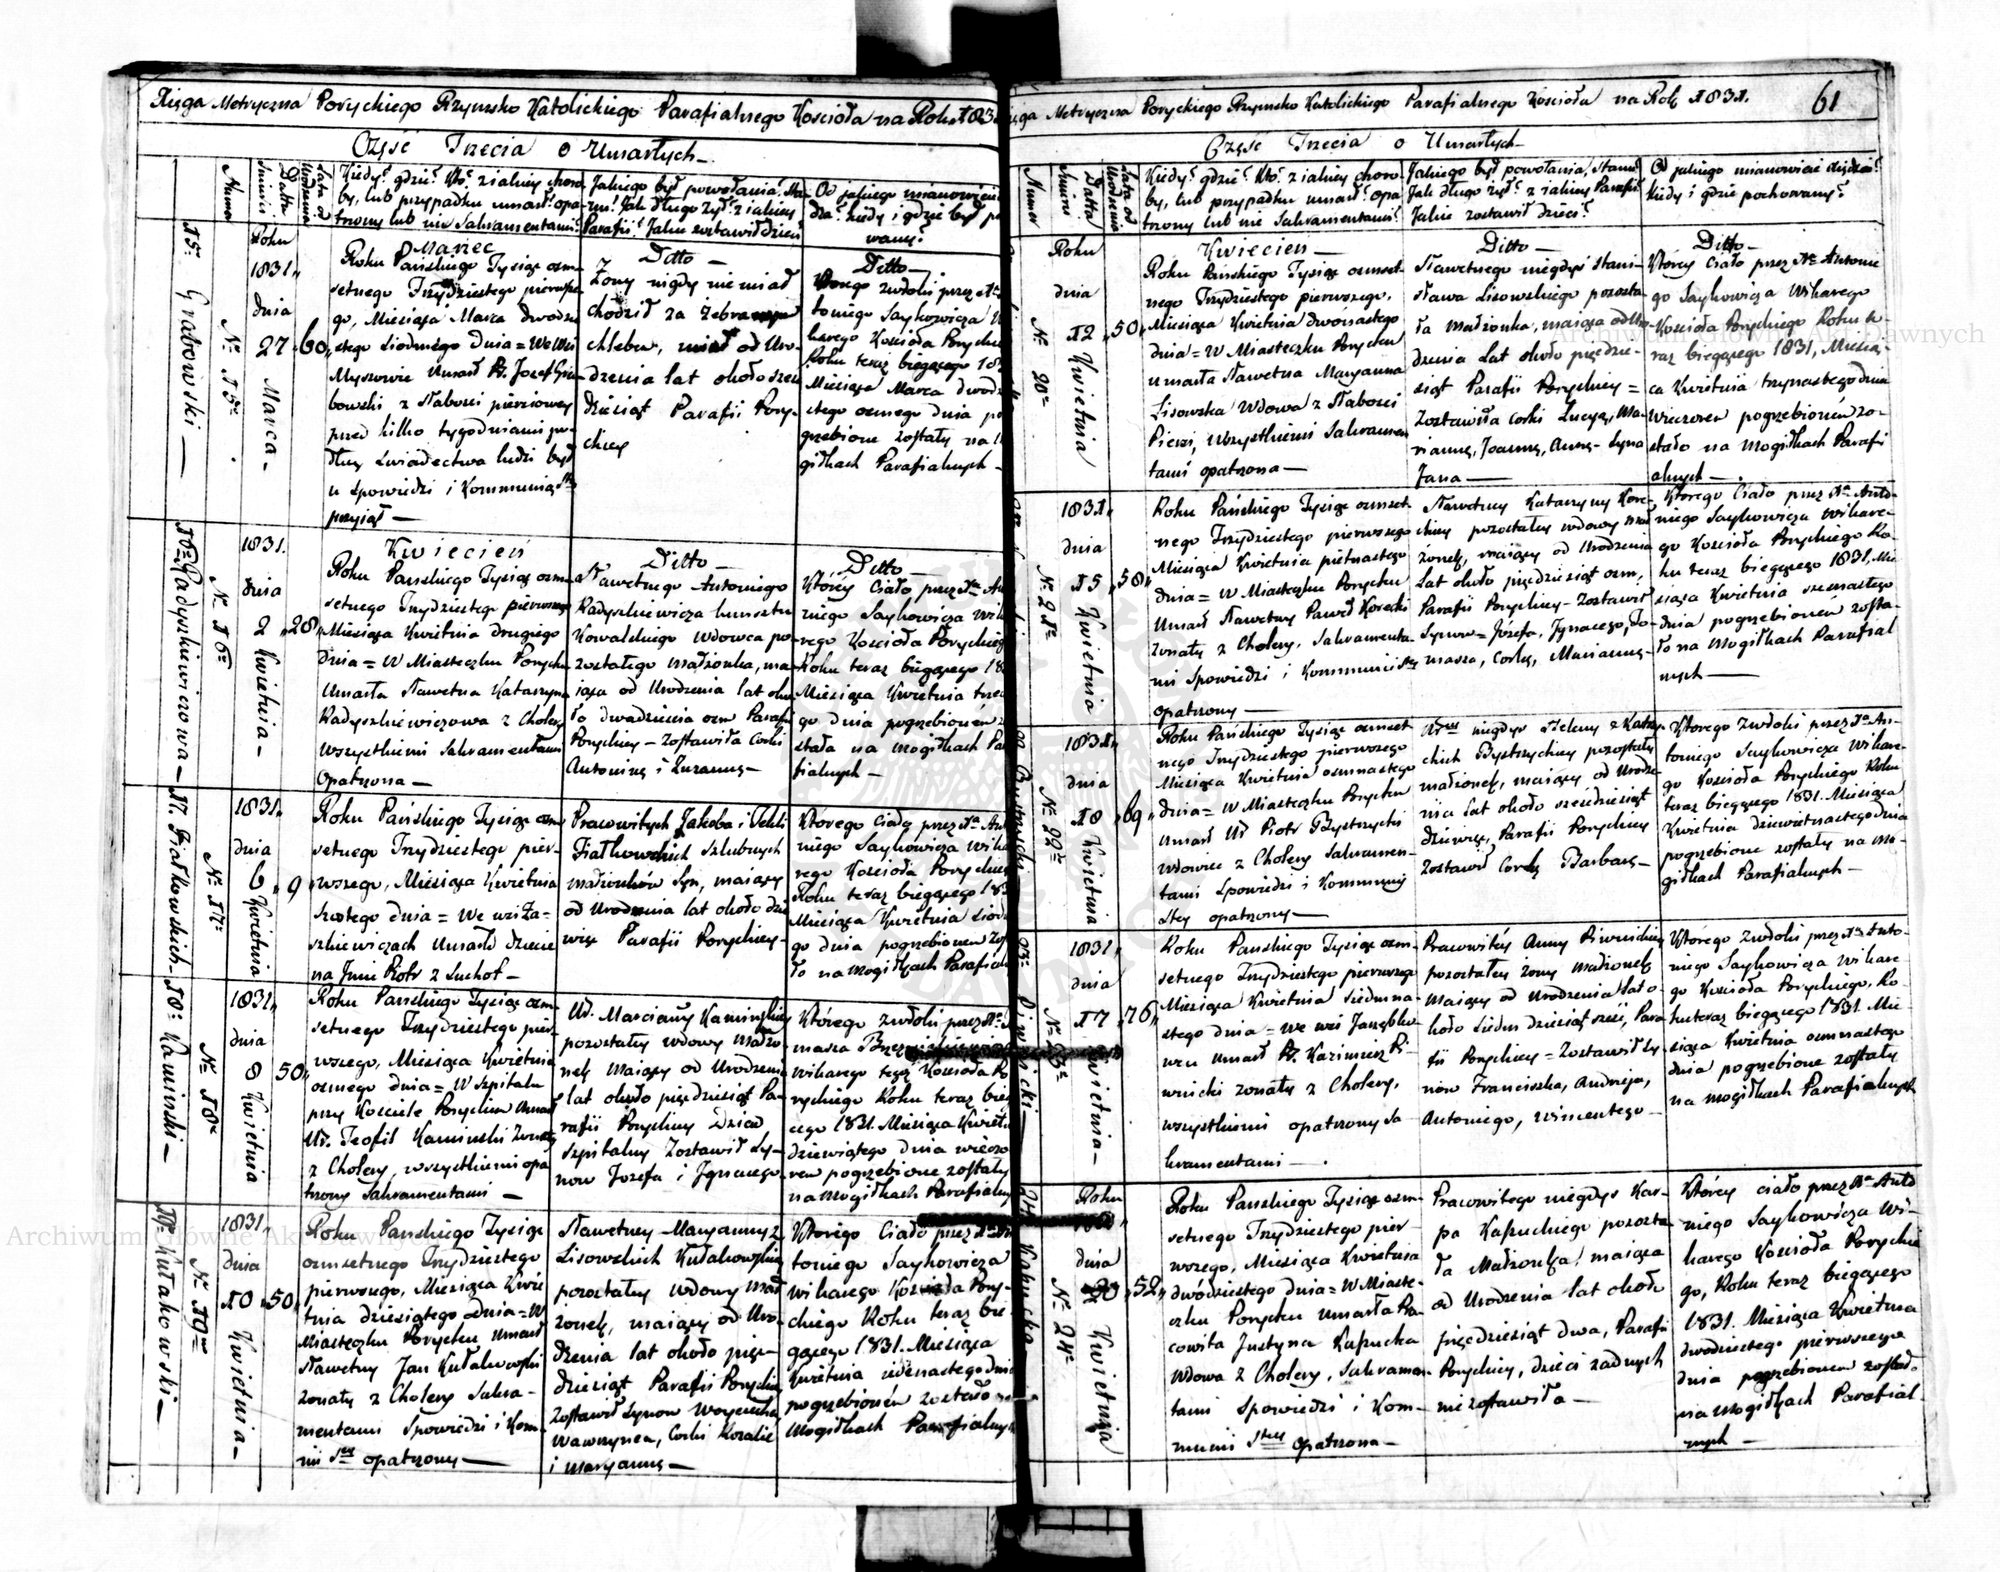 Xięga Metryczna Poryckiego Rzymsko Katolickiego Parafialnego Kościoła na Rok 183
Część Trzecia o Umarłych
Numer
Datta Śmierci
Lata od Urodzenia
Kiedy? gdzie? Kto? z iakiey choro
by, lub przypadku umarł? opa
trzony lub nie Sakramentami?
Jakiego był powołania? Sta
nu? Jak długo żył? z iakiey
Parafii? Jakie zostawił dzieci
Od jakiego mianowicie
dza? kiedy i gdzie był po
wany?
15. Grabowski
Nr 15
Roku
1831
dnia
27
Marca
60
Marzec
Roku Pańskiego Tysiąc osm
setnego Trzydziestego pierwsze
go, Miesiąca Marca dwudzie
stego siodmego dnia = We Wsi
Myszowie Umarł Józef Gra
bowski z słabości piersiowey
przed kilko tygodniami po
dług świadectwa ludzi był
u Spowiedzi i Kommunią
przyiął
Ditto
Żony nigdy nie miał
chodził za żebranym
chlebem, miał od Uro
dzenia lat około sześć
dziesiąt Parafii Pory-
ckiey
Ditto
toniego Saykowicza
karego Kościoła Poryckie
Roku teraz bieżącego 18
Miesiąca Marca dwudz
stego osmego dnia po
grzebione zostały na
giłkach Parafialnych
16 Radyszkiewiczowa
Nr 16
1831.
dnia
2
Kwietnia
28
Kwiecień
Roku Pańskiego Tysiąc osm
setnego Trzydziestego pierwszego
Miesiąca Kwietnia drugiego
dnia = W Miasteczku Porycku
Umarła Sławetna Katarzyna
Radyszkiewiczowa z Cholery
wszystkiemi Sakramentami
Opatrzona
Ditto
Sławetnego Antoniego
Radyszkiewicza kunsztu
Kowalskiego Wdowca po
zostałego małżonka, ma
iąca od Urodzenia lat oko
ło dwadzieścia osm Parafii
Poryckiey - Zostawiła Corki
Antoninę i Zuzannę
Ditto
Którey Ciało przez Xa An
niego Saykowicza Wik
rego Kościoła Poryckieg
Roku teraz bieżącego 18
Miesiąca Kwietnia trze
go dnia pogrzebionem z
stało na mogiłkach Pa
fialnych
17. Fiałkowskich
Nr 17
1831
dnia
6
Kwietnia
9
Roku Pańskiego Tysiąc osm
setnego Trzydziestego pier-
wszego, Miesiąca Kwietnia
szostego dnia = We wsi Ża-
szkiewiczach Umarło dziecie
na Imie Piotr z Suchot
Pracowitych Jakoba i Tekli
Fiałkowskich Szlubnych
małżonków Syn, maiący
od Urodzenia lat około dzie
więc Parafii Poryckiey
Którego Ciało przez Xa Ant
niego Saykowicza Wika
rego Kościoła Poryckieg
Roku teraz bieżącego 183
Miesiąca Kwietnia siod
go dnia pogrzebionem zos
ło na mogiłkach Parafial
18. Kaminski
Nr 18
1831
dnia
8
Kwietnia
50
Roku Pańskiego Tysiąc osm
setnego Trzydziestego pier
wszego, Miesiąca Kwietnia
osmego dnia = W Szpitalu
przy Kościele Poryckim Umarł
Ur. Teofil Kaminski Żonaty
z Cholery, wszystkiemi opa
trzony Sakramentami
Ur. Marcianny Kaminskiey
pozostałey wdowy małżo
nek maiący od Urodzenia
lat około pięćdziesiąt Pa
rafii Poryckiey Dziad
Szpitalny Zostawił Sy-
now Jozefa i Jgnacego
Którego zwłoki przez Xa
masza
Wikarego tegoż Kościoła Po
ryckiego Roku teraz bież
cego 1831. Miesiąca Kwietn
dziewiątego dnia wieczo
rem pogrzebione zostały
na mogiłkach Parafialny
19. Kułakowski
Nr 19
1831
dnia
10
Kwietnia
50
Roku Pańskiego Tysiąc
osmsetnego Trzydziestego
pierwszego, Miesiąca Kwie
tnia dziesiątego dnia = W
Miasteczku Porycku Umarł
Sławetny Jan Kułakowski
żonaty z Cholery Sakra-
mentami Spowiedzi i Kom-
mii Stey opatrzony
Sławetney Maryanny z
Lisowskich Kułakowskiey
pozostałey wdowy mał
żonek, maiący od Uro-
dzenia lat około pięć-
dziesiąt Parafii Poryckiey
Zostawił Synow Woyciecha
Wawrzynca, Corki Rozalię
i Maryannę
Którego Ciało przez Xa An
toniego Saykowicza
Wikarego Kościoła Pory-
ckiego Roku teraz bie
gącego 1831. Miesiąca
Kwietnia iedenastego dnia
pogrzebionem zostało na
Mogiłkach Parafialnych
ięga Metryczna Poryckiego Rzymsko Katolickiego Parafialnego Kościoła na Rok 1831.
61
Część Trzecia o Umarłych
Numer
Datta Śmierci
Lata od Urodzenia
Kiedy? gdzie? Kto? z iakiey choro
by, lub przypadku umarł? opa
trzony lub nie Sakramentami?
Jakiego był powołania, Stanu?
Jak długo żył? z iakiey Parafii?
Jakie zostawił dzieci?
Od jakiego mianowicie Xiędza?
kiedy i gdzie pochowany?
Nr 20
Roku
dnia
12
Kwietnia
50
Kwiecien
Roku Pańskiego Tysiąc osmset-
nego Trzydziestego pierwszego,
Miesiąca Kwietnia dwónastego
dnia = W Miasteczku Porycku
umarła Sławetna Maryanna
Lisowska Wdowa z słabości
Piersi, wszystkiemi Sakramen
tami opatrzona
Ditto
Sławetnego niegdyś Stani
sława Lisowskiego pozosta
ła małżonka, maiąca od Uro-
dzenia Lat około pięćdzie-
siąt Parafii Poryckiey =
Zostawiła corki Łucyą, Ma-
riannę, Joannę, Annę - Syna
Jana
Ditto
Którey Ciało przez Xa Antonie
go Saykowicza Wikarego
Kościoła Poryckiego Roku te-
raz bieżącego 1831, Miesią-
ca Kwietnia trzynastego dnia
wieczorem pogrzebionem zo-
stało na mogiłkach Parafi
alnych
Nr 21
1831
dnia
15
Kwietnia
58
Roku Pańskiego Tysiąc osmset
nego Trzydziestego pierwszego
Miesiąca Kwietnia pietnastego
dnia = W Miasteczku Porycku
Umarł Sławetny Paweł Korecki
żonaty z Cholery, Sakramenta
mi Spowiedzi i Kommunii Stey
opatrzony
Sławetney Katarzyny Kore-
ckiey pozostałey wdowy mał
żonek, maiący od Urodzenia
Lat około pięćdziesiąt osm,
Parafii Poryckiey - Zostawił
Synow = Józefa, Jgnacego, To-
masza, Corkę, Mariannę
Którego Ciało przez Xa Anto-
niego Saykowicza Wikare-
go Kościoła Poryckiego Ro
ku teraz bieżącego 1831. Mie
siąca Kwietnia szesnastego
dnia pogrzebionem zosta-
ło na Mogiłkach Parafial
nych
22 Bystrzycki
Nr 22
1831
dnia
18
Kwietnia
69
Roku Pańskiego Tysiąc osmset
nego Trzydziestego pierwszego
Miesiąca Kwietnia osmnastego
dnia = W Miasteczku Porycku
Umarł Ur Piotr Bystrzycki
Wdowiec z Cholery Sakramen-
tami Spowiedzi i Kommunij
Stey opatrzony
niegdys Heleny z
ckich Bystrzyckiey pozostały
małżonek, maiący od Urodze
nia Lat około sześćdziesiąt
dziewięć, Parafii Poryckiey
Zostawił Corkę Barbarę
Którego Zwłoki przez Xa An-
toniego Saykowicza Wikare-
go Kościoła Poryckiego Roku
teraz bieżącego 1831. Miesiąca
Kwietnia dziewietnastego dnia
pogrzebione zostały na Mo-
giłkach Parafialnych
23. Piwnicki
Nr 23
1831
dnia
17
Kwietnia
76
Roku Pańskiego Tysiąc osm-
setnego Trzydziestego pierwszego
Miesiąca Kwietnia siedmna-
stego dnia = We wsi Jarzębko-
wcu Umarł Kazimierz Pi
wnicki żonaty z Cholery,
wszystkiemi opatrzony Sa
kramentami
Pracowitey Anny Piwnickiey
pozostałey żony Małżonek
maiący od Urodzenia lat o
koło siedm dziesiąt sześć, Para
fii Poryckiey = Zostawił Sy
now Franciszka, Andrzeja,
Antoniego, Wincentego
Którego Zwłoki przez Xa Anto-
niego Saykowicza Wikare-
go Kościoła Poryckiego, Ro-
ku teraz bieżącego 1831. Mie
siąca Kwietnia osmnastego
dnia pogrzebione zostały
na Mogiłkach Parafialnych
24 Kapucka
Nr 24
Roku
dnia
20
Kwietnia
52
Roku Pańskiego Tysiąc osm-
setnego Trzydziestego pier-
wszego, Miesiąca Kwietnia
dwódziestego dnia = W Miaste-
czku Porycku Umarła Pra-
cowita Justyna Kapucka
Wdowa z Cholery, Sakramen
tami Spowiedzi i Kom-
munii Stey opatrzona
Pracowitego niegdys Kar-
pa Kapuckiego pozosta
ła Małżonka, maiąca
od Urodzenia lat około
pięćdziesiąt dwa, Parafii
Poryckiey, dzieci żadnych
nie zostawiła
Którey ciało przez Xa Anto
niego Saykowicza Wi-
karego Kościoła Poryckie
go, Roku teraz bieżącego
1831. Miesiąca Kwietnia
dwodziestego pierwszego
dnia pogrzebionem zostało
na Mogiłkach Parafial-
nych
Archiwum Główne Akt Dawnych
Archiwum Główne Akt Dawnych